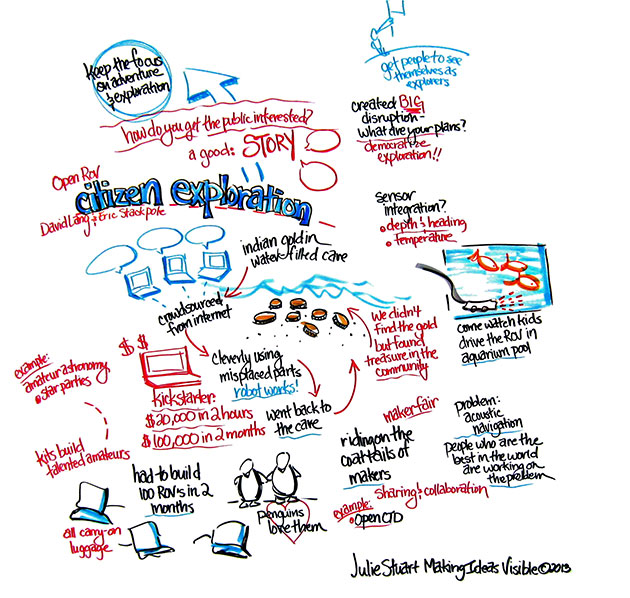 Keep the focus
on adventure
& exploration
how do you get the public interested?
a good: STORY
Open ROV
citizen exploration
David Lang & Eric Stackpole
indian gold in
water-filled cave
crowdsourced
from internet
$ $
Kickstarter:
$20,000 in 2 hours
$100,000 in 2 months
cleverly using
misplaced parts
robot works!
went back to
the cave
we didn't
find the gold
but found
treasure in the
community
example:
amateur astronomy
star parties
kits build
talented amateurs
had to build
100 ROV's in 2
months
all carry-on
luggage
Penguins
love them
get people to see
themselves as
explorers
created BIG
disruption-
what are your plans?
democratize
exploration!!
sensor
integration?
• depth & heading
• temperature
come watch kids
drive the ROV in
aquarium pool
makerfair
riding on the
coattails of
makers
Problem:
acoustic
navigation
People who are the
best in the world
are working on
the problem
sharing & collaboration
example:
• Open CTD
Julie Stuart Making Ideas Visible © 2013